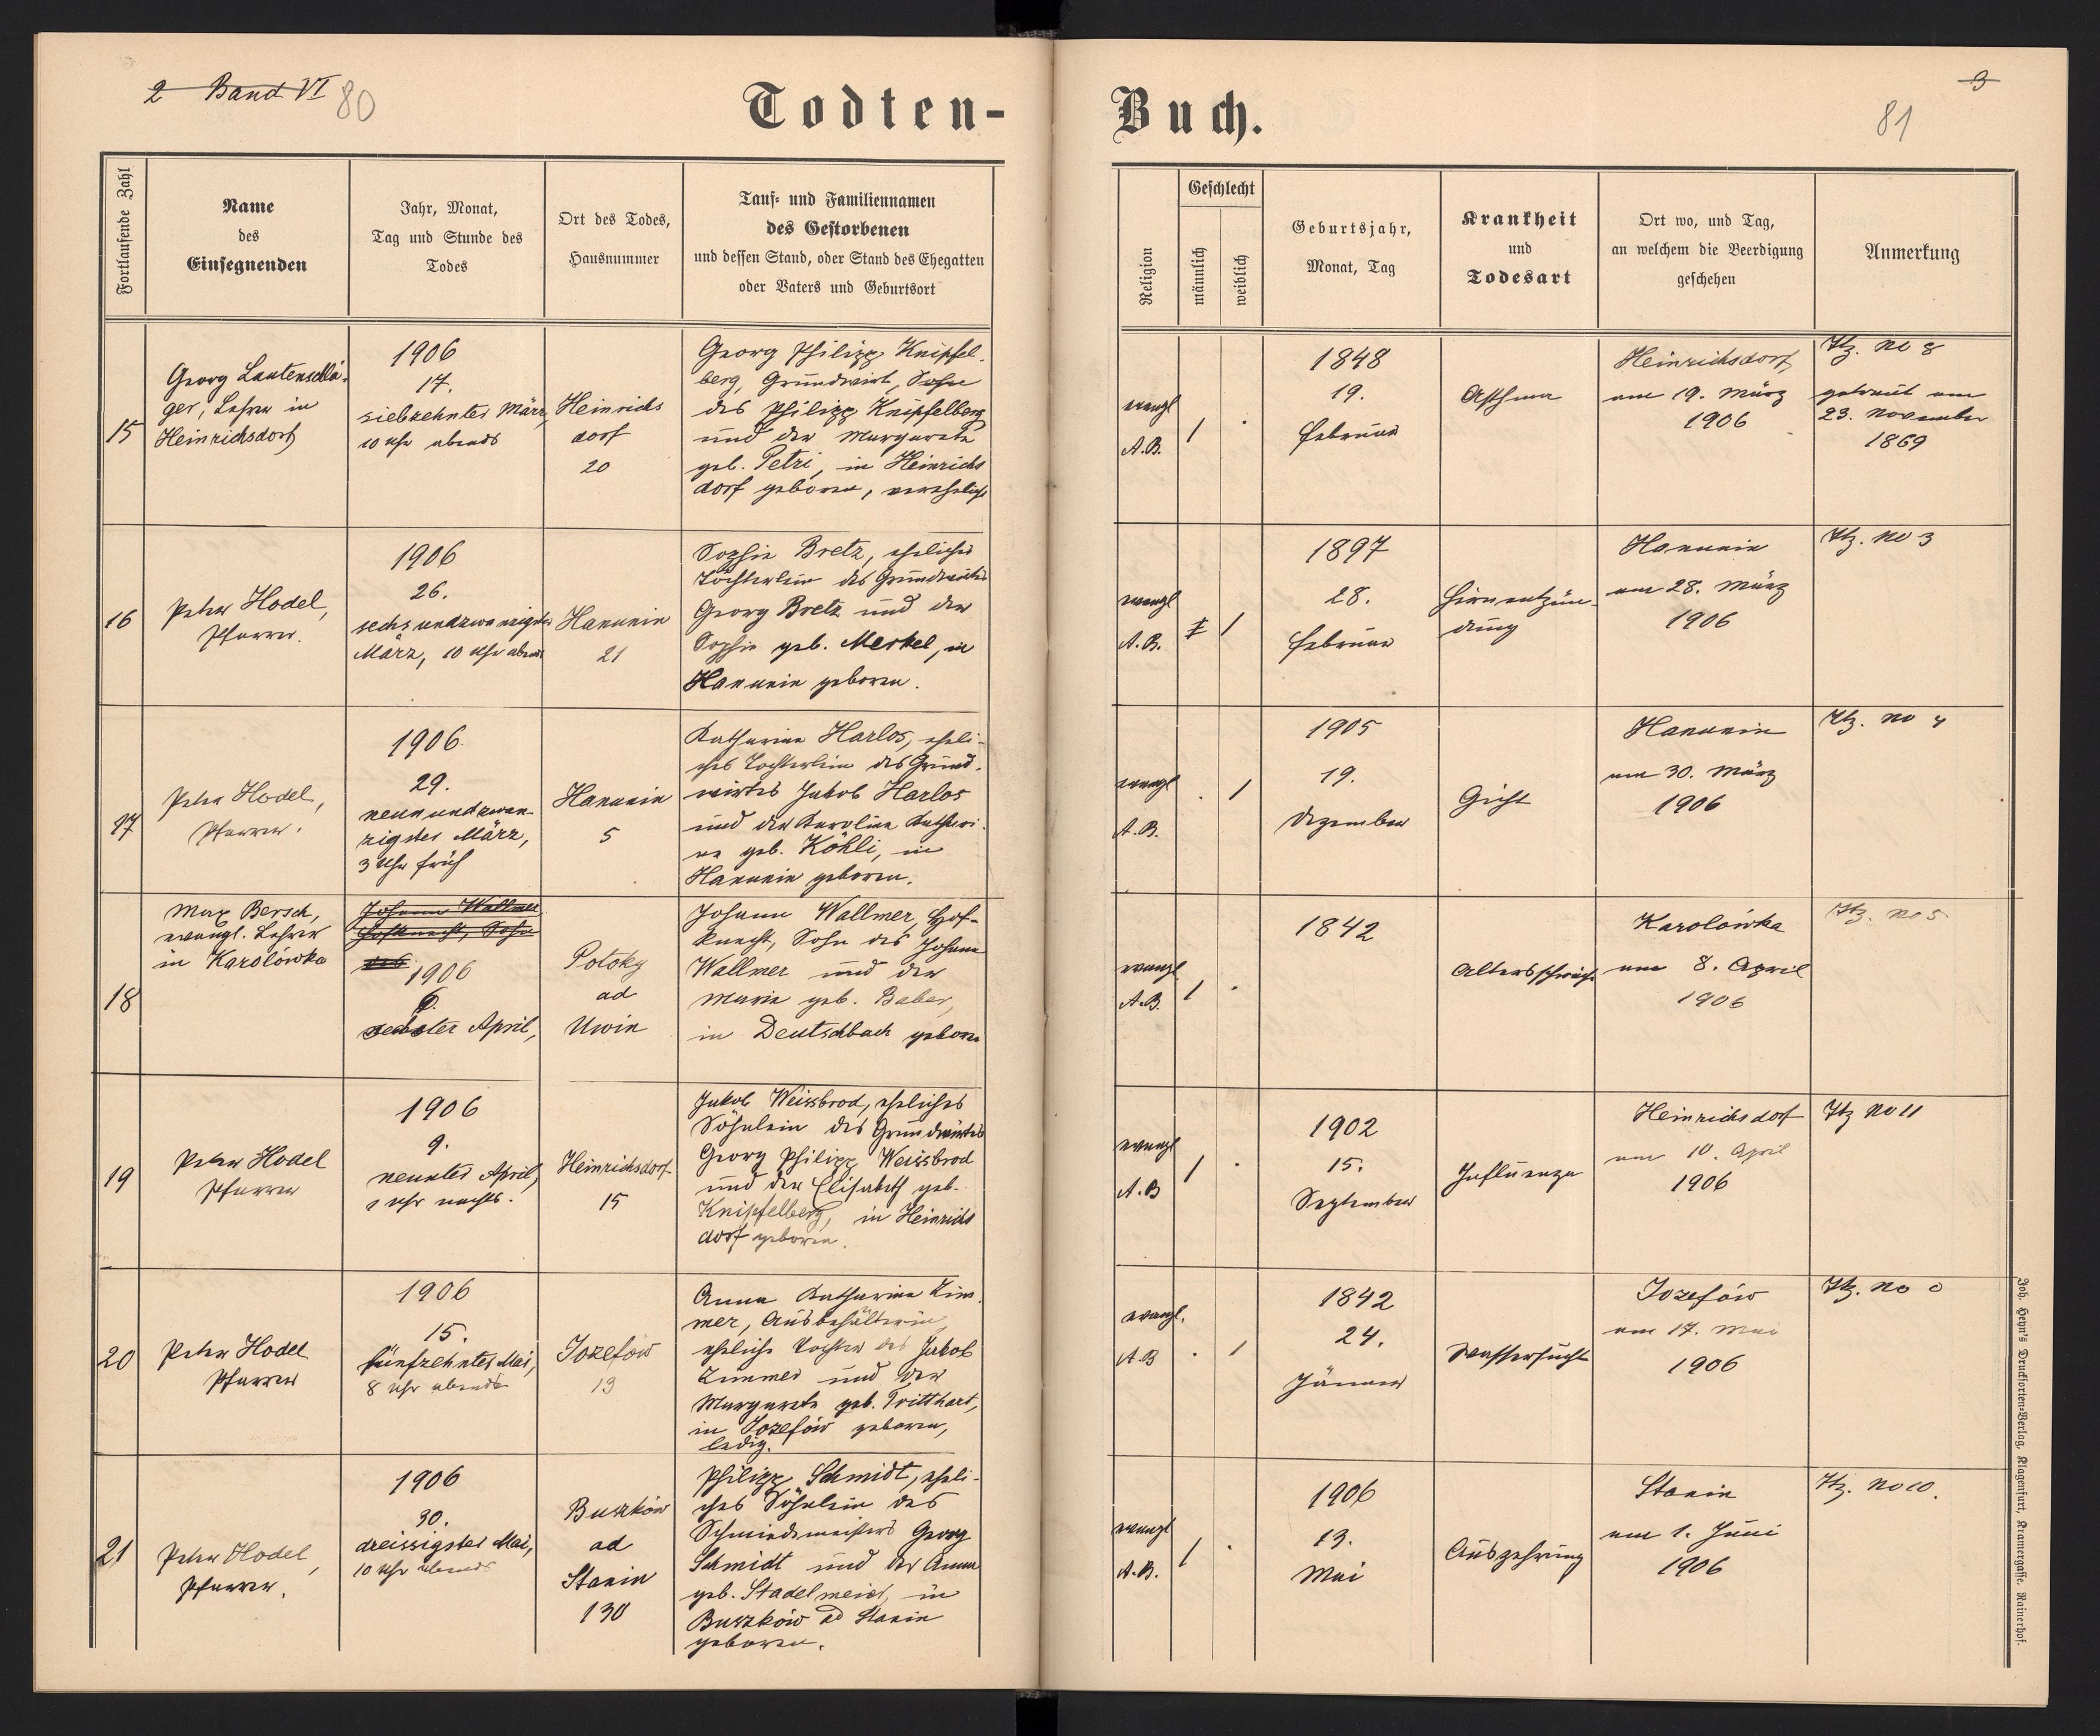 2 Band VI 80
Todten-
Fortlaufende Zahl
Name
des
Einsegnenden
Jahr, Monat,
Tag und Stunde des
Todes
Ort des Todes,
Hausnummer
Tauf- und Familiennamen
des Gestorbenen
und dessen Stand, oder Stand des Ehegatten
oder Vaters und Geburtsort
15
Georg Lautenschlä-
ger, Lehrer in
Heinrichsdorf
1906
17.
siebzehnter März,
10 Uhr abends
Heinrichs
dorf
20
Georg Philipp Knipfel-
berg, Grundwirt, Sohn
des Philipp Knipfelberg
und der Margareta
geb. Petri, in Heinrichs
dorf geboren, verehelicht
16
Peter Hodel,
Pfarrer.
1906
26.
sechsundzwanzigster
März, 10 Uhr abends
Hanunin
21
Sophie Bretz, eheliches
Töchterlein des Grundwirtes
Georg Bretz und der
Sophie geb. Merkel, in
Hanunin geboren.
17
Peter Hodel,
Pfarrer.
1906
29.
neunundzwan-
zigster März,
3 Uhr früh
Hanunin
5
Katharina Harlos, eheli-
ches Töchterlein des Grund-
wirtes Jakob Harlos
und der Karolina Kathari-
na geb. Köhli, in
Hanunin geboren.
18
Max Bersch,
evangl. Lehrer
in Karolówka
Johann Wallmer
Hofknecht, Sohn
des
1906
6.
sechster April,
Potoky
ad
Uwin
Johann Wallmer, Hof-
knecht, Sohn des Johann
Wallmer und der
Maria geb. Baber,
in Deutschbach geboren
19
Peter Hodel
Pfarrer
1906
9.
neunter April,
1 Uhr nachts.
Heinrichsdorf
15
Jakob Weissbrod, eheliches
Söhnlein des Grundwirtes
Georg Philipp Weissbrod
und der Elisabeth geb.
Knipfelberg, in Heinrichs
dorf geboren.
20
Peter Hodel
Pfarrer
1906
15.
fünfzehnter Mai,
8 Uhr abends
Jozefów
13
Anna Katharina Zim-
mer, Ausbehälterin,
eheliche Tochter des Jakob
Zimmer und der
Margareta geb. Tritthart,
in Jozefów geboren,
ledig.
21
Peter Hodel,
Pfarrer.
1906
30.
dreissigster Mai,
10 Uhr abends
Buszków
ad
Stanin
130
Philipp Schmidt, eheli-
ches Söhnlein des
Schmiedmeisters Georg
Schmidt und der Anna
geb. Stadelmeier, in
Buszków ad Stanin
geboren.
3
81
Buch.
Religion
Geschlecht
männlich
weiblich
Geburtsjahr,
Monat, Tag
Krankheit
und
Todesart
Ort wo, und Tag,
an welchem die Beerdigung
geschehen
Anmerkung
evangl
A.B.
1
1848
19.
Februar
Asthma
Heinrichsdorf,
am 19. März
1906
Hz. No 8
getraut am
23. November
1869
evangl
A.B.
1
1897
28.
Februar
Hirnentzün-
dung
Hanunin
am 28. März
1906
Hz. No 3
evangl
A.B.
1
1905
19.
Dezember
Gicht
Hanunin
am 30. März
1906
Hz. No 4
evangl.
A.B.
1
1842
Altersschwäche
Karolówka
am 8. April
1906
Hz. No 5
evangl
A.B
1
1902
15.
September
Influenza
Heinrichsdorf
am 10. April
1906
Hz No 11
evangl.
A.B
1
1842
24.
Jänner
Wassersucht
Jozefów
am 17. Mai
1906
Hz. No 0
evangl
A.B.
1
1906
13.
Mai
Auszehrung
Stanin
am 1. Juni
1906
Hz. No 10.
Joh. Heyn's Drucksorten-Verlag, Klagenfurt, Kramergasse, Rainerhof.